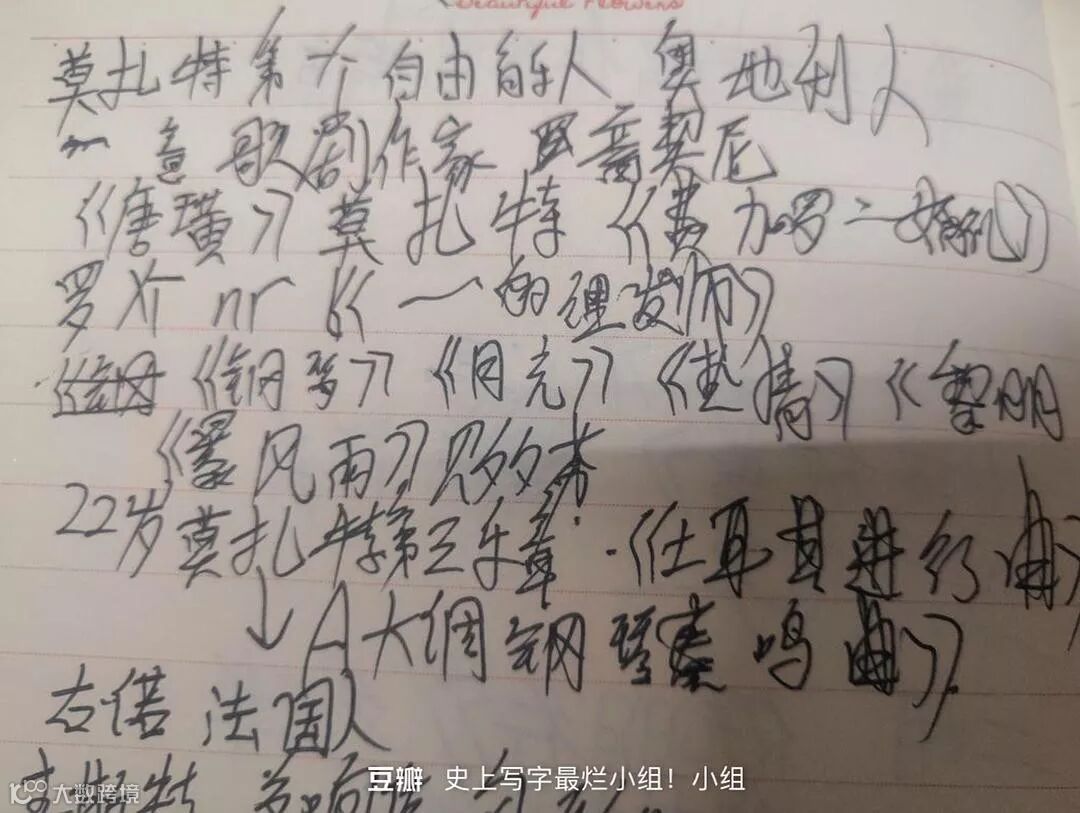 Beautiful Flowers
莫扎特第一个自由音乐人 奥地利人
意歌剧作家 普契尼
《唐璜》莫扎特《费加罗婚礼》
罗 《一的理发师》
《钢琴》《月光》《悲情》《黎明
《暴风雨》贝多芬
22岁莫扎特第三乐章·《土耳其进行曲》
↓A大调钢琴奏鸣曲》
古诺 法国人
豆瓣 史上写字最烂小组！小组
大数跨境